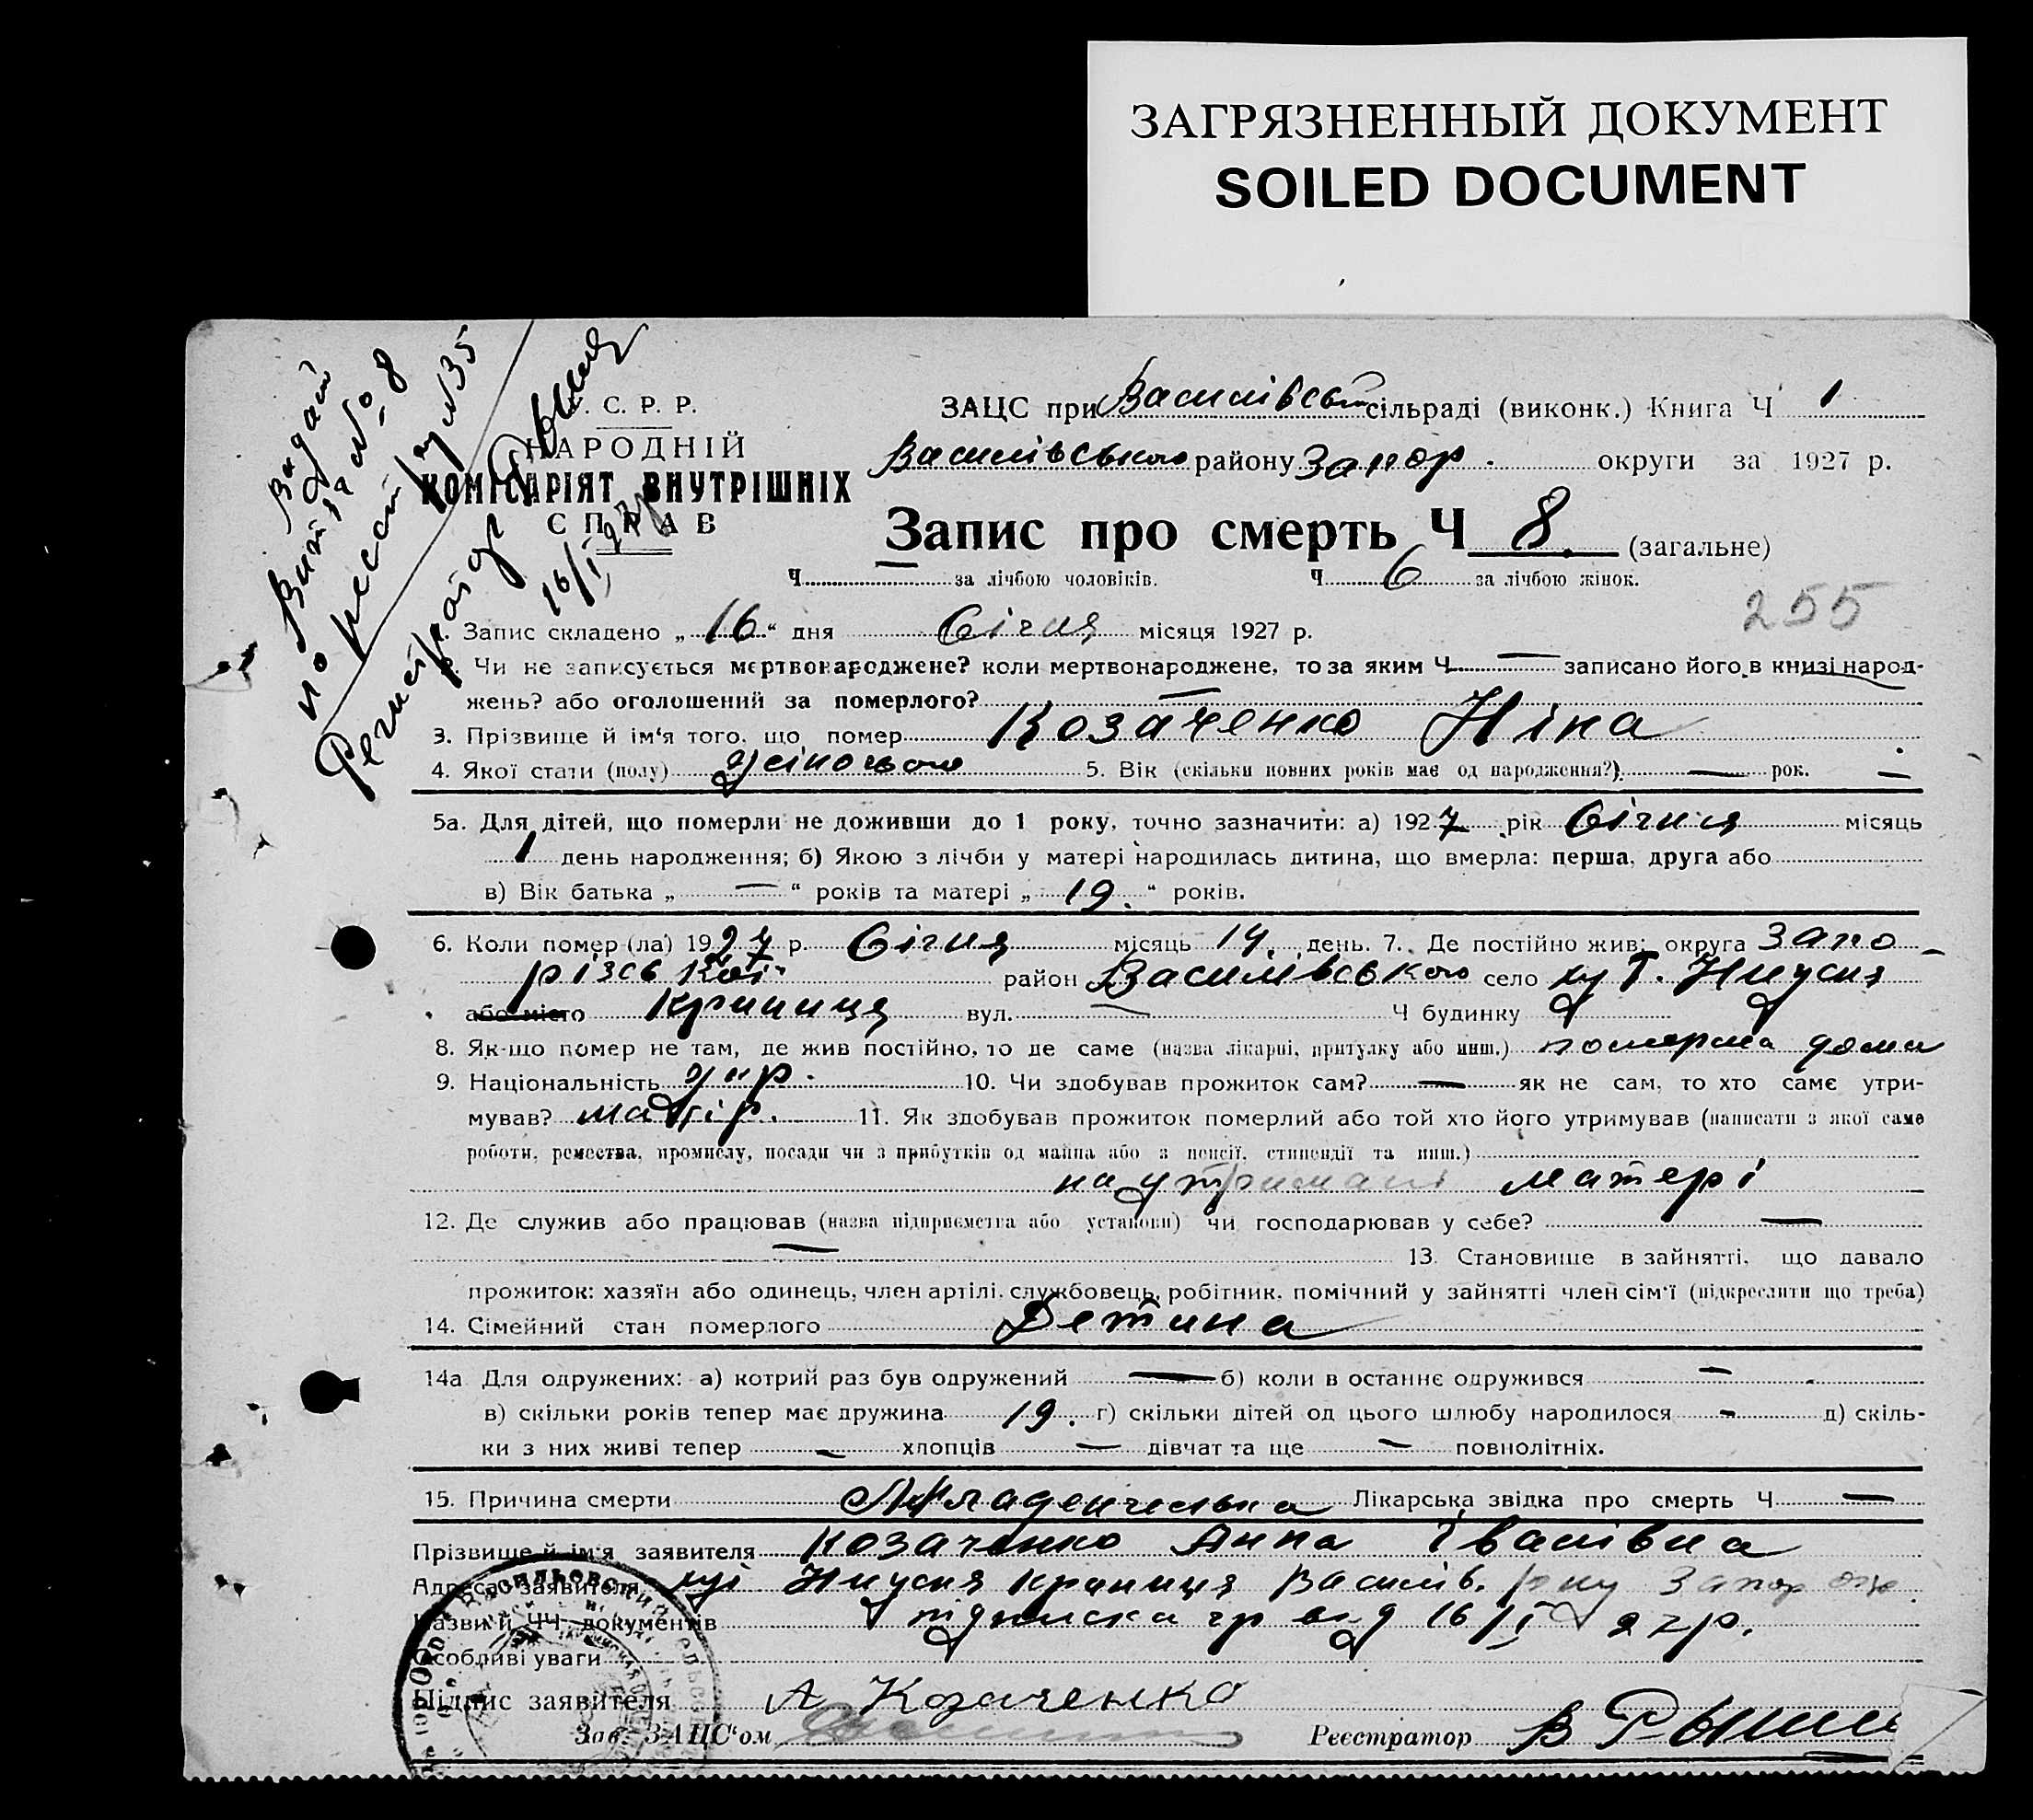 ЗАГРЯЗНЕННЫЙ ДОКУМЕНТ
SOILED DOCUMENT
Видат
Вит за № 8
по реєстру № 35
Регистратор
16/I 27
. С. Р. Р.
НАРОДНІЙ
КОМІСАРІЯТ ВНУТРІШНІХ
СПРАВ
ЗАЦС при Василівськ сільраді (виконк.) Книга Ч 1
Василівського району Запор. округи за 1927 р.
Запис про смерть Ч 8. (загальне)
Ч — за лічбою чоловіків. Ч 6 за лічбою жінок.
255
1. Запис складено „16“ дня Січня місяця 1927 р.
2. Чи не записується мертвонароджене? коли мертвонароджене, то за яким Ч — записано його в книзі народ-
жень? або оголошений за померлого? —
3. Прізвище й ім‘я того, що помер Козаченко Ніна
4. Якої стати (полу) жіночого 5. Вік (скільки повних років має од народження?) — рок. —
5а. Для дітей, що померли не доживши до 1 року, точно зазначити: а) 1927 рік Січня місяць
1 день народження; б) Якою з лічби у матері народилась дитина, що вмерла: перша, друга або
в) Вік батька „ — “ років та матері „ 19. “ років.
6. Коли помер (ла) 1927 р. Січня місяць 14. день. 7. Де постійно жив: округа Запо-
різськ район Василівського село хут. Гнуча
або місто Криниця вул. — Ч будинку
8. Як-що помер не там, де жив постійно, то де саме (назва лікарні, притулку або инш.) померла дома
9. Національність укр. 10. Чи здобував прожиток сам? — як не сам, то хто саме утри-
мував? матір. 11. Як здобував прожиток померлий або той хто його утримував (написати з якої саме
роботи, ремества, промислу, посади чи з прибутків од майна або з пенсії, стипендії та инш.)
на утримані матері
12. Де служив або працював (назва підприємства або установи) чи господарював у себе? —
— 13. Становище в зайнятті, що давало
прожиток: хазяїн або одинець, член артілі, службовець, робітник, помічний у зайнятті член сім‘ї (підкреслити що треба)
14. Сімейний стан померлого Детина
14а Для одружених: а) котрий раз був одружений — б) коли в останнє одружився —
в) скільки років тепер має дружина 19. г) скільки дітей од цього шлюбу народилося — д) скіль-
ки з них живі тепер — хлопців — дівчат та ще — повнолітніх.
15. Причина смерти Младенческа Лікарська звідка про смерть Ч —
Прізвище й ім‘я заявителя Козаченко Анна Іванівна
Адреса заявителя Криниця Василів. р-ну Запор окр
Назви й ЧЧ документів підписка гр від 16/I 27р.
Особливі уваги
Підпис заявителя А Козаченко
Зав. ЗАЦС‘ом Реєстратор В